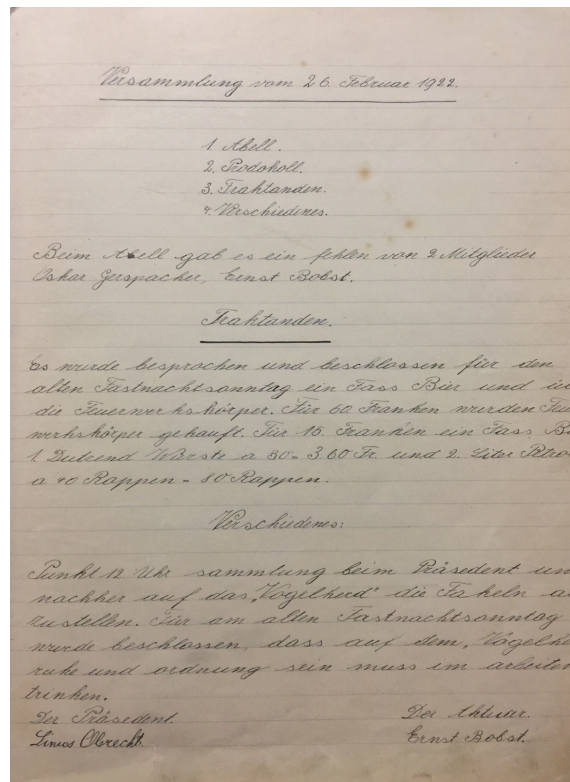 Versammlung vom 26. Februar 1922.
1 Abell.
2. Prodokoll.
3. Traktanden.
4. Verschiedenes.
Beim Abell gab es ein fehlen von 2 Mitglieder
Oskar Gerspacher, Ernst Bobst.
Traktanden.
Es wurde besprochen und beschlossen für den
alten Fastnachtsonntag ein Fass Bier und
die Feuerwerkskörper. Für 60 Franken wurden
werkskörper gekauft. Für 15. Franken ein Fass
1. Dutzend Würste a 30 = 3.60 Fr. und 2. Liter
a 40 Rappen = 80 Rappen.
Verschiedenes:
Punkt 12 Uhr sammlung beim Präsedent
nachher auf das „Vogelherd" die Fakeln
zustellen. Für am alten Fastnachtsonntag
wurde beschlossen, dass auf dem
ruhe und ordnung sein muss im
trinken.
Der Präsedent. Der Aktuar.
Linus Obrecht. Ernst Bobst.